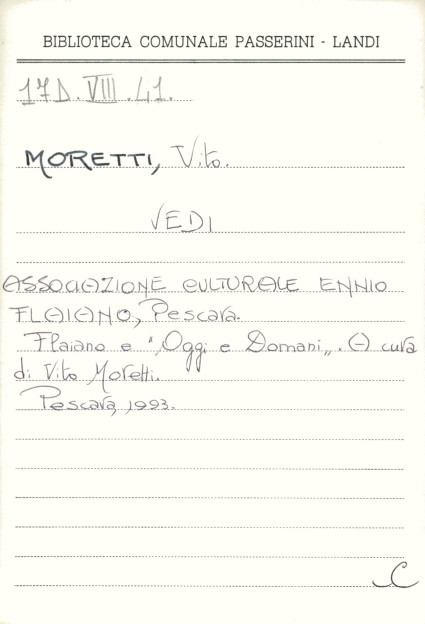 BIBLIOTECA COMUNALE PASSERINI - LANDI
17D.VIII.41.
MORETTI, Vito.
VEDI
ASSOCIAZIONE CULTURALE ENNIO
FLAIANO, Pescara.
Flaiano e "Oggi e Domani". A cura
di Vito Moretti.
Pescara, 1993.
C